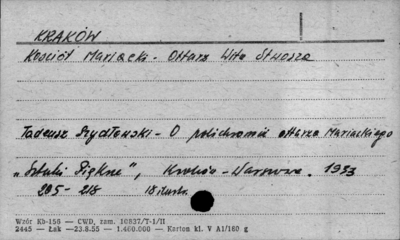 KRAKÓW
Kościół Mariacki - Ołtarz Wita Stwosza
Tadeusz Szydłowski - O polichromii ołtarza Mariackiego
„Sztuki Piękne", Kraków - Warszawa. 1933
205 - 218 18 ilustr.
Wzór Kb-156 — CWD, zam. 10837/T-1/II
2445 — Łak —23.8.55 — 1.400.000 — Karton kl. V A1/160 g